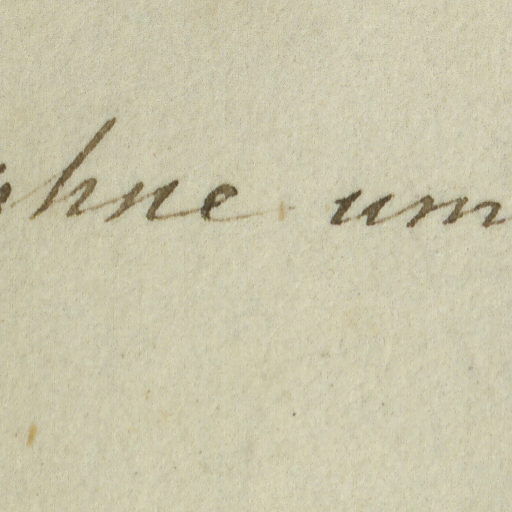 ohne um